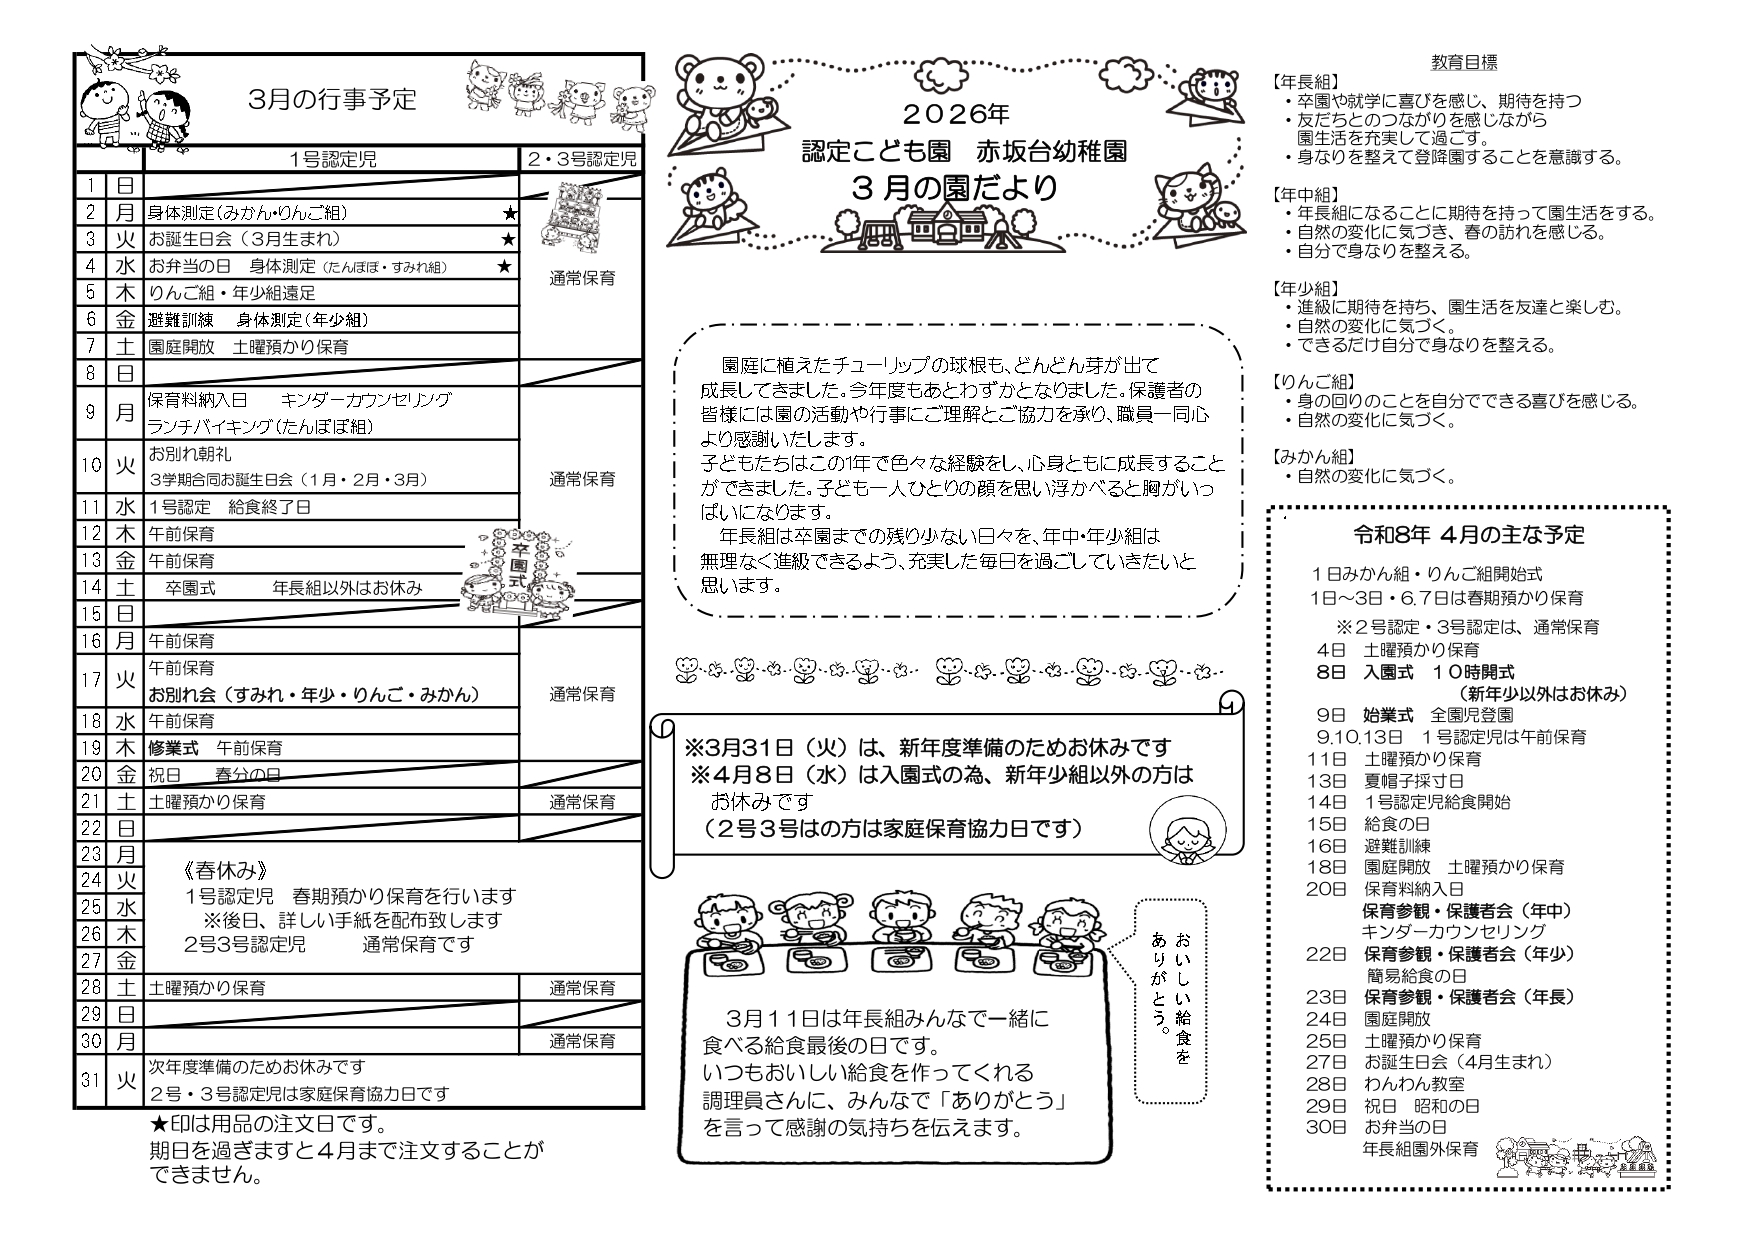 3月の行事予定
1号認定児 2・3号認定児
1 日
2 月 身体測定(みかん・りんご組) ★
3 火 お誕生日会（3月生まれ） ★
4 水 お弁当の日　身体測定（たんぽぽ・すみれ組） ★
通常保育
5 木 りんご組・年少組遠足
6 金 避難訓練　身体測定(年少組)
7 土 園庭開放　土曜預かり保育
8 日
9 月 保育料納入日　キンダーカウンセリング
ランチバイキング(たんぽぽ組)
10 火 お別れ朝礼
3学期合同お誕生日会（1月・2月・3月）
通常保育
11 水 1号認定　給食終了日
12 木 午前保育
13 金 午前保育
卒園式
14 土 卒園式　年長組以外はお休み
15 日
16 月 午前保育
17 火 午前保育
お別れ会（すみれ・年少・りんご・みかん）
通常保育
18 水 午前保育
19 木 修業式　午前保育
20 金 祝日　春分の日
21 土 土曜預かり保育 通常保育
22 日
23 月
24 火
25 水
26 木
27 金
《春休み》
1号認定児　春期預かり保育を行います
※後日、詳しい手紙を配布致します
2号3号認定児　通常保育です
28 土 土曜預かり保育 通常保育
29 日
30 月 通常保育
31 火 次年度準備のためお休みです
2号・3号認定児は家庭保育協力日です
★印は用品の注文日です。
期日を過ぎますと4月まで注文することが
できません。
2026年
認定こども園　赤坂台幼稚園
3月の園だより
園庭に植えたチューリップの球根も、どんどん芽が出て
成長してきました。今年度もあとわずかとなりました。保護者の
皆様には園の活動や行事にご理解とご協力を承り、職員一同心
より感謝いたします。
子どもたちはこの1年で色々な経験をし、心身ともに成長すること
ができました。子ども一人ひとりの顔を思い浮かべると胸がいっ
ぱいになります。
年長組は卒園までの残り少ない日々を、年中・年少組は
無理なく進級できるよう、充実した毎日を過ごしていきたいと
思います。
※3月31日（火）は、新年度準備のためお休みです
※4月8日（水）は入園式の為、新年少組以外の方は
お休みです
（2号3号はの方は家庭保育協力日です）
おいしい給食を
ありがとう。
3月11日は年長組みんなで一緒に
食べる給食最後の日です。
いつもおいしい給食を作ってくれる
調理員さんに、みんなで「ありがとう」
を言って感謝の気持ちを伝えます。
教育目標
【年長組】
・卒園や就学に喜びを感じ、期待を持つ
・友だちとのつながりを感じながら
園生活を充実して過ごす。
・身なりを整えて登降園することを意識する。
【年中組】
・年長組になることに期待を持って園生活をする。
・自然の変化に気づき、春の訪れを感じる。
・自分で身なりを整える。
【年少組】
・進級に期待を持ち、園生活を友達と楽しむ。
・自然の変化に気づく。
・できるだけ自分で身なりを整える。
【りんご組】
・身の回りのことを自分でできる喜びを感じる。
・自然の変化に気づく。
【みかん組】
・自然の変化に気づく。
令和8年 4月の主な予定
1日みかん組・りんご組開始式
1日～3日・6.7日は春期預かり保育
※2号認定・3号認定は、通常保育
4日　土曜預かり保育
8日　入園式　10時開式
（新年少以外はお休み）
9日　始業式　全園児登園
9.10.13日　1号認定児は午前保育
11日　土曜預かり保育
13日　夏帽子採寸日
14日　1号認定児給食開始
15日　給食の日
16日　避難訓練
18日　園庭開放　土曜預かり保育
20日　保育料納入日
保育参観・保護者会（年中）
キンダーカウンセリング
22日　保育参観・保護者会（年少）
簡易給食の日
23日　保育参観・保護者会（年長）
24日　園庭開放
25日　土曜預かり保育
27日　お誕生日会（4月生まれ）
28日　わんわん教室
29日　祝日　昭和の日
30日　お弁当の日
年長組園外保育